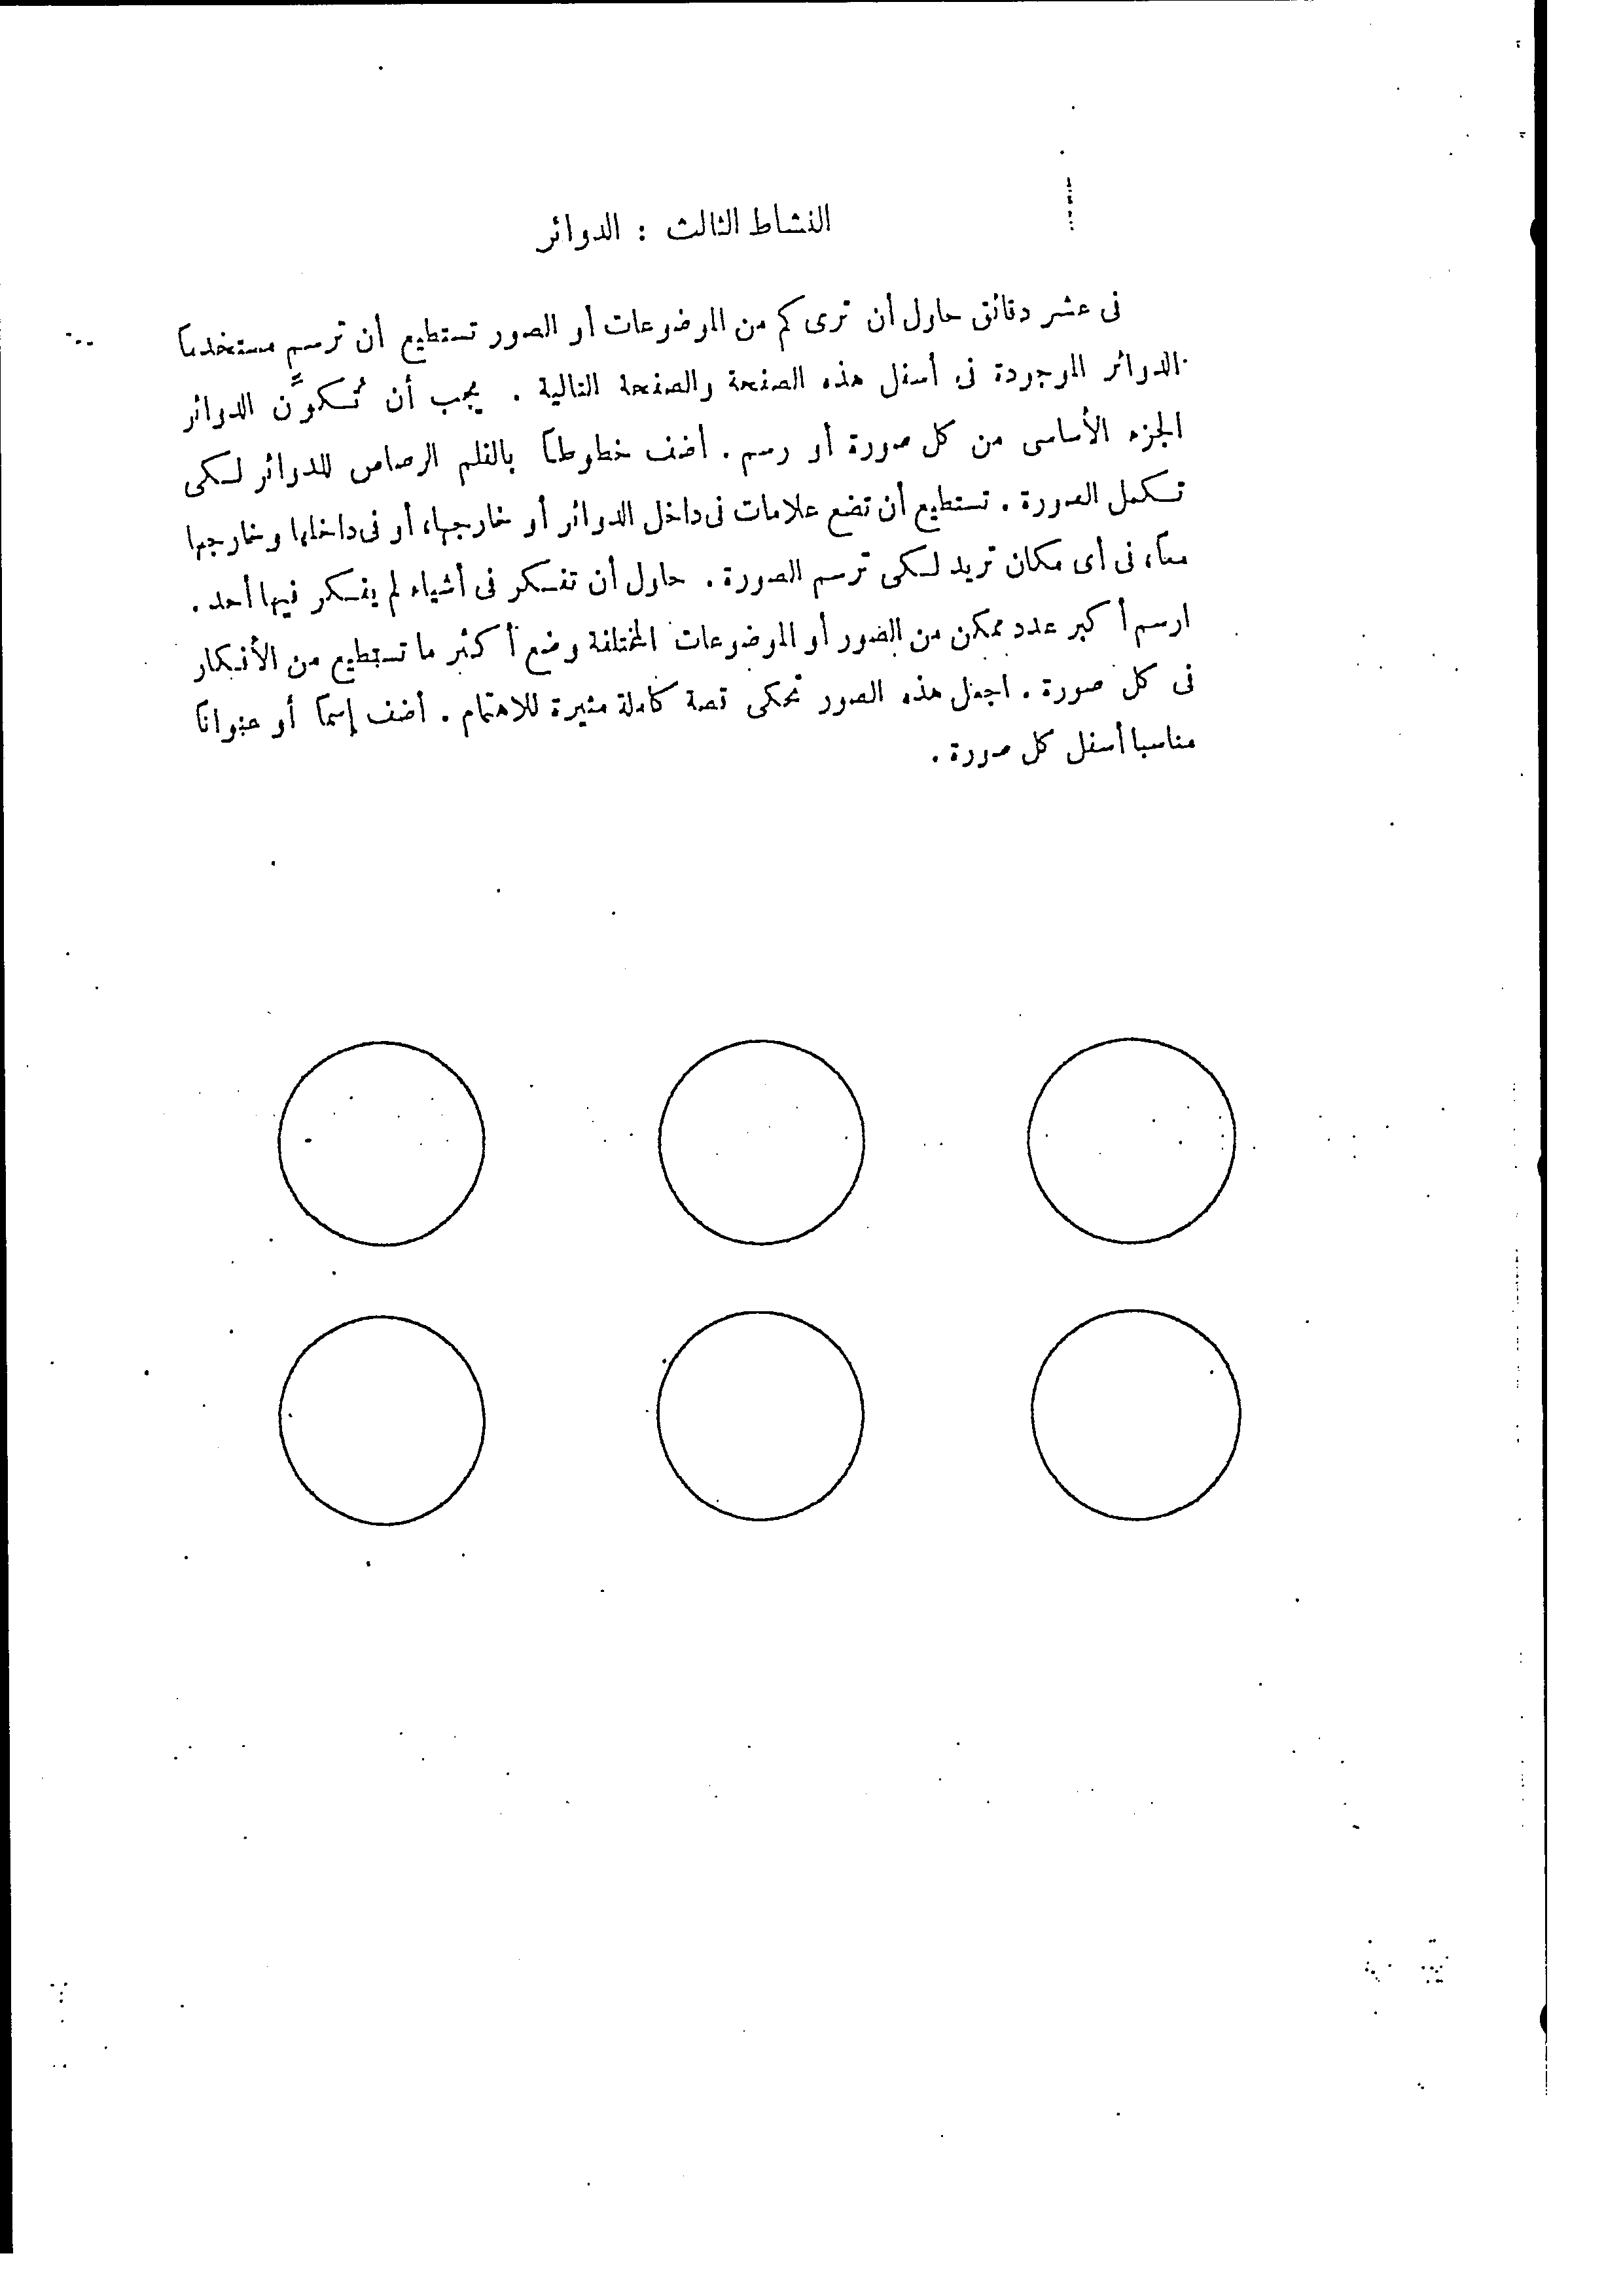 النشاط الثالث : الدوائر
فى عشر دقائق حاول أن ترى كم من الموضوعات أو الصور تستطيع أن ترسم مستخدماً
الدوائر الموجودة فى أسفل هذه الصفحة والصفحة التالية . يجب أن تُكوِّن الدوائر
الجزء الأساسى من كل صورة أو رسم . أضف خطوطاً بالقلم الرصاص للدوائر لكى
تكمل الصورة . تستطيع أن تضع علامات فى داخل الدوائر أو خارجها، أو فى داخلها وخارجها
معاً، فى أى مكان تريد لكى ترسم الصورة . حاول أن تفكر فى أشياء لم يفكر فيها أحد .
ارسم أكبر عدد ممكن من الصور أو الموضوعات المختلفة وضع أكثر ما تستطيع من الأفكار
فى كل صورة . اجعل هذه الصور تحكى قصة كاملة مثيرة للاهتمام . أضف إسماً أو عنواناً
مناسبا أسفل كل صورة .